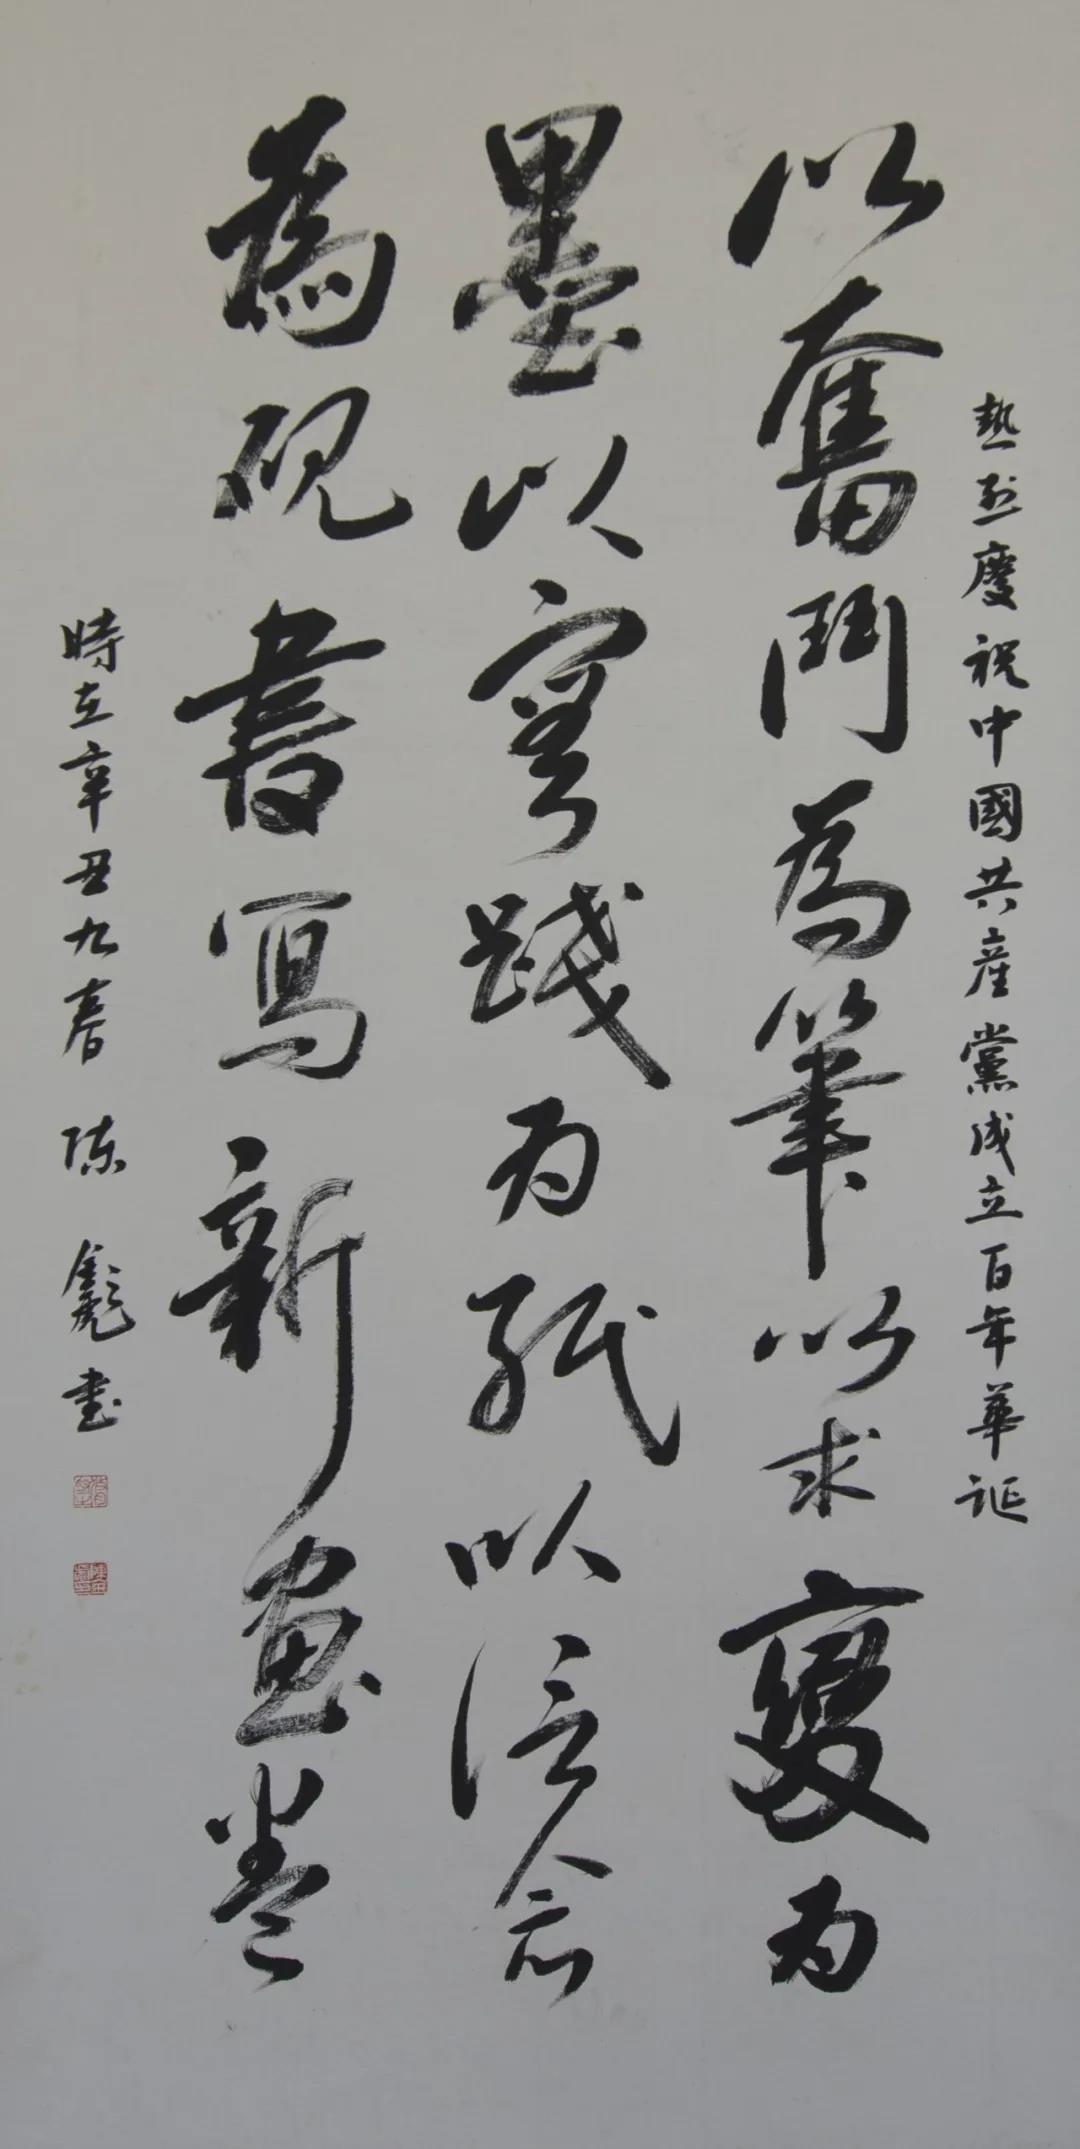 熱烈慶祝中國共產黨成立百年華誕
以奮鬥為筆以求變为
墨以實踐为紙以信念
為硯書寫新畫卷
時在辛丑九春 陳 書